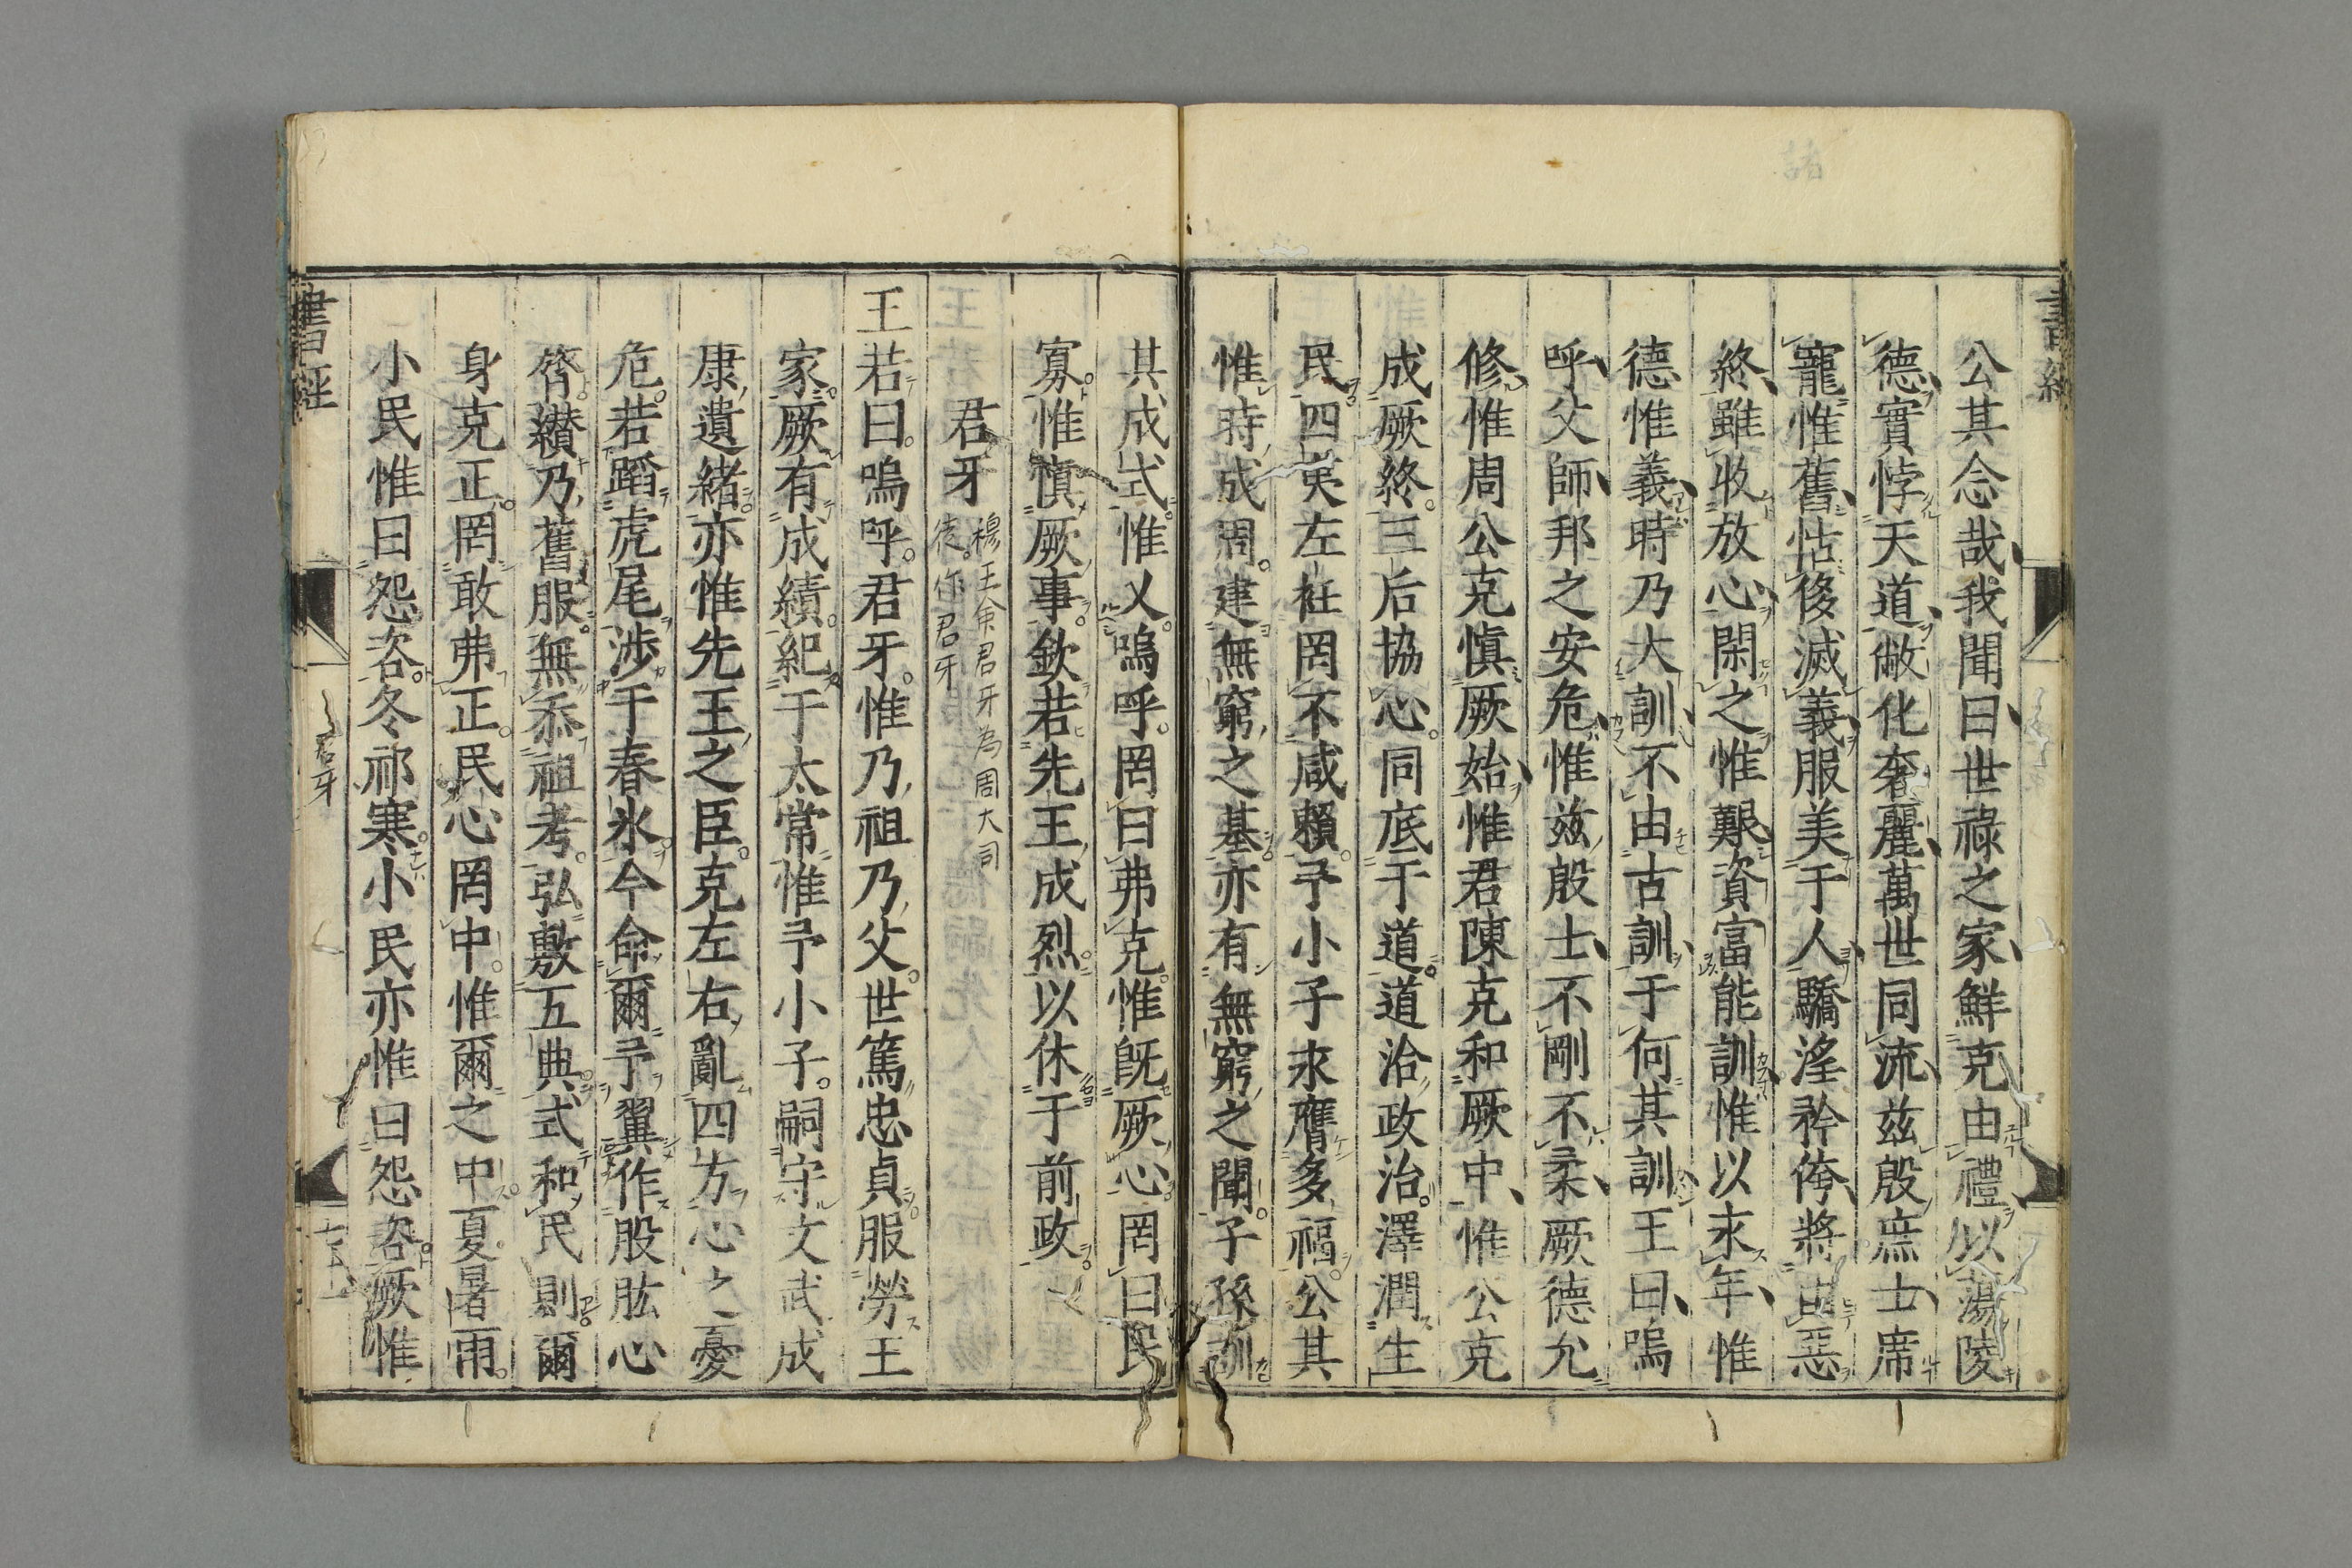 書經
公其念哉我聞曰世祿之家鮮克由禮以蕩陵
德實悖天道敝化奢麗萬世同流茲殷庶士席
寵惟舊怙侈滅義服美于人驕淫矜侉將由惡
終雖收放心閑之惟艱資富能訓惟以永年惟
德惟義時乃大訓不由古訓于何其訓王曰嗚
呼父師邦之安危惟茲殷士不剛不柔厥德允
修惟周公克愼厥始惟君陳克和厥中惟公克
成厥終三后協心同底于道道洽政治澤潤生
民四夷左衽罔不咸賴予小子永膺多福公其
惟時成周建無窮之基亦有無窮之聞子孫訓
其成式惟乂嗚呼罔曰弗克惟旣厥心罔曰民
寡惟愼厥事欽若先王成烈以休于前政
君牙 穆王命君牙為周大司
徒。作君牙
王若曰。嗚呼。君牙。惟乃祖乃父。世篤忠貞服勞王
家。厥有成績。紀于太常惟予小子。嗣守文武成
康遺緒。亦惟先王之臣。克左右亂四方心之憂
危。若蹈虎尾涉于春氷。今命爾予翼作股肱心
膂。纉乃舊服。無忝祖考。弘敷五典式和民則。爾
身克正。罔敢弗正。民心罔中。惟爾之中。夏暑雨。
小民惟曰怨咨。冬祁寒。小民亦惟曰怨咨。厥惟
書經
君牙